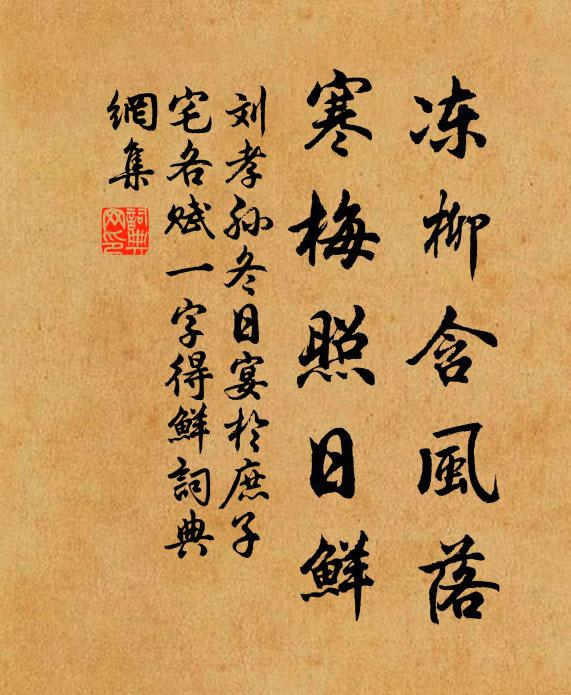 冻柳含風落
寒梅照日鮮
刘孝孙冬日宴於庶子
宅各赋一字得鮮詞典
網集
詞典
网印